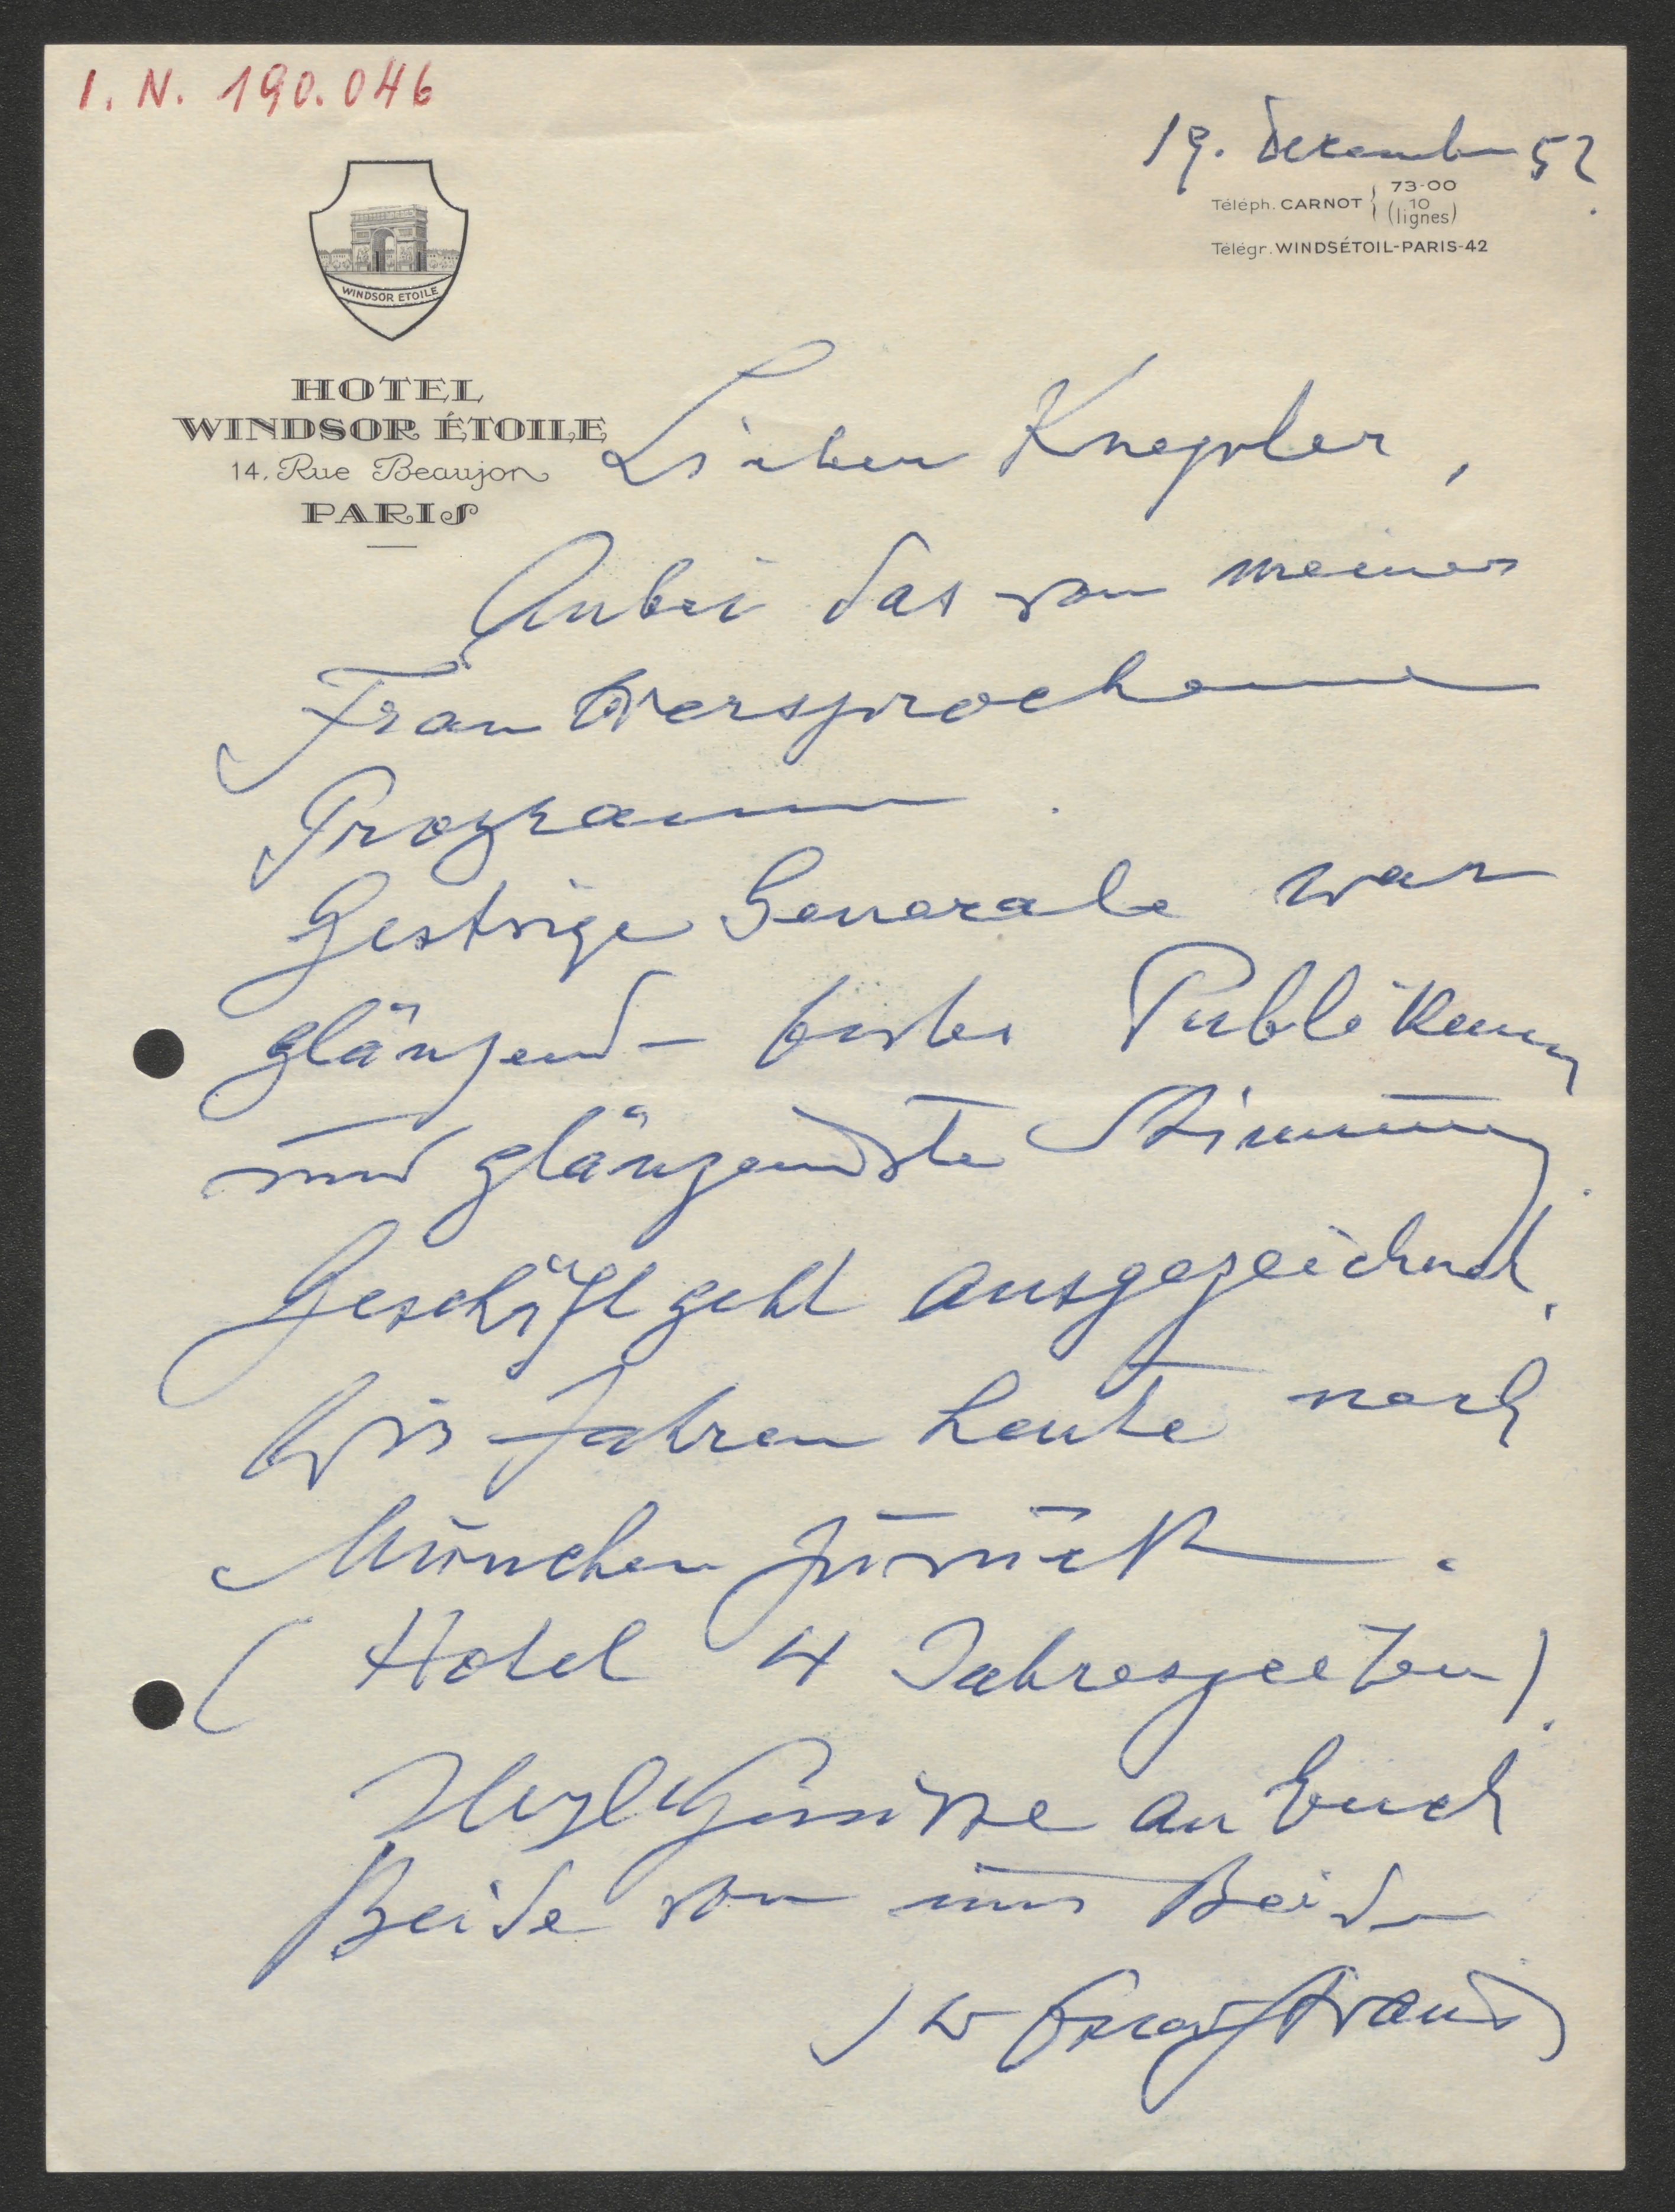 I. N. 190.046
19. Dezember 52.
Téléph. CARNOT { 73-00
10
(lignes)
Télégr. WINDSÉTOIL-PARIS-42
WINDSOR ETOILE
HOTEL
WINDSOR ÉTOILE
14. Rue Beaujon
PARIS
Lieber Knepler,
Anbei das von meiner
Frau versprochene
Programm.
Gestrige Generale war
glänzend – bestes Publikum
und glänzendste Stimmung.
Geschäft geht ausgezeichnet.
Wir fahren heute nach
München zurück.
(Hotel 4 Jahreszeiten).
Herzl Grüsse an Euch
Beide von uns Beiden
Ihr Oscar Straus